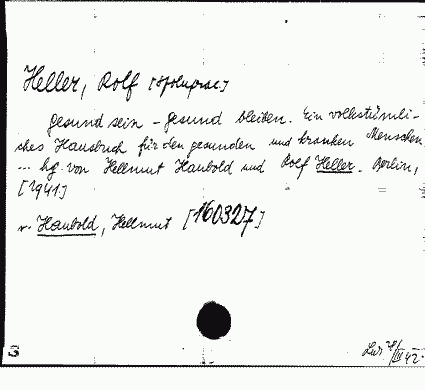 Heller, Rolf
gesund sein - gesund bleiben. Ein volkstümli-
ches Hausbuch für den gesunden und kranken Menschen
... hg. von Hellmut Haubold und Rolf Heller. Berlin,
[1941]
v. Haubold, Hellmut [160327]